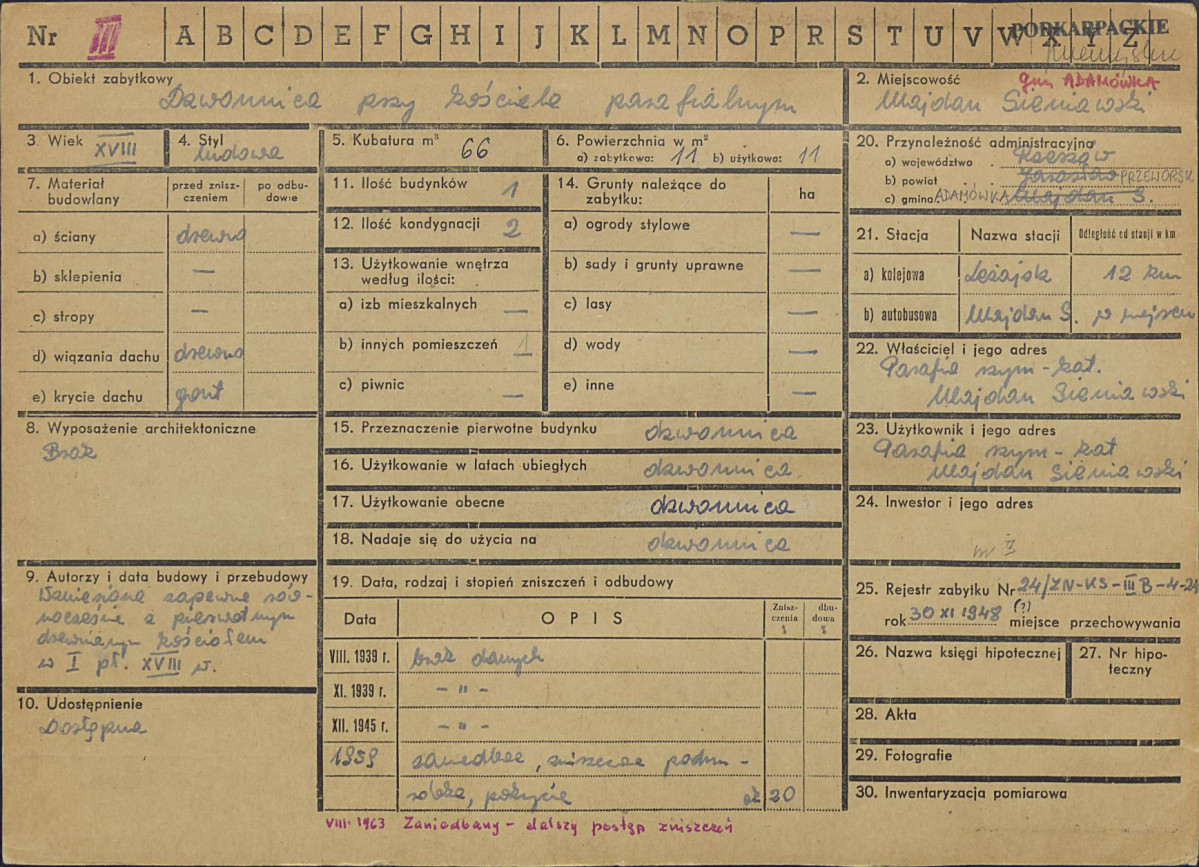 Nr III A B C D E F G H I J K L M N O P R S T U V W X Y Z
PODKARPACKIE
1. Obiekt zabytkowy
Dzwonnica przy kościele parafialnym
2. Miejscowość gm ADAMÓWKA
Majdan Sieniawski
3. Wiek XVIII
4. Styl ludowa
5. Kubatura m³ 66
6. Powierzchnia w m²
a) zabytkowa: 11 b) użytkowa: 11
7. Materiał budowlany
przed zniszczeniem
po odbudowie
a) ściany drewno
b) sklepienia —
c) stropy —
d) wiązania dachu drewno
e) krycie dachu gont
8. Wyposażenie architektoniczne
Brak
9. Autorzy i data budowy i przebudowy
Wzniesiona zapewne rów-
nocześnie z pierwotnym
drewnianym kościołem
w I poł. XVIII w.
10. Udostępnienie
Dostępna
11. Ilość budynków 1
12. Ilość kondygnacji 2
13. Użytkowanie wnętrza
według ilości:
a) izb mieszkalnych —
b) innych pomieszczeń 1
c) piwnic —
14. Grunty należące do
zabytku: ha
a) ogrody stylowe —
b) sady i grunty uprawne —
c) lasy —
d) wody —
e) inne —
15. Przeznaczenie pierwotne budynku dzwonnica
16. Użytkowanie w latach ubiegłych dzwonnica
17. Użytkowanie obecne dzwonnica
18. Nadaje się do użycia na dzwonnica
19. Data, rodzaj i stopień zniszczeń i odbudowy
Data OPIS Zniszczenia % dbudowa %
VIII. 1939 r. brak danych
XI. 1939 r. — " —
XII. 1945 r. — " —
1959 zaniedbae, zniszczae podm-
rówka, pokrycie ok 20
VIII-1963 Zaniedbany - dalszy postęp zniszczeń
20. Przynoleżność administracyjna
a) województwo Rzeszów
b) powiat Jarosław PRZEWORSK
c) gmina ADAMÓWKA Majdan S.
21. Stacja Nazwa stacji Odległość od stacji w km
a) kolejowa Leżajsk 12 km
b) autobusowa Majdan S. w miejscu
22. Właściciel i jego adres
Parafia rzym-kat.
Majdan Sieniawski
23. Użytkownik i jego adres
Parafia rzym-kat
Majdan Sieniawski
24. Inwestor i jego adres
25. Rejestr zabytku Nr 24/ZN-KS-III B-4-24
rok 30 XI 1948 (?) miejsce przechowywania
26. Nazwa księgi hipotecznej
27. Nr hipo-
teczny
28. Akta
29. Fotografie
30. Inwentaryzacja pomiarowa